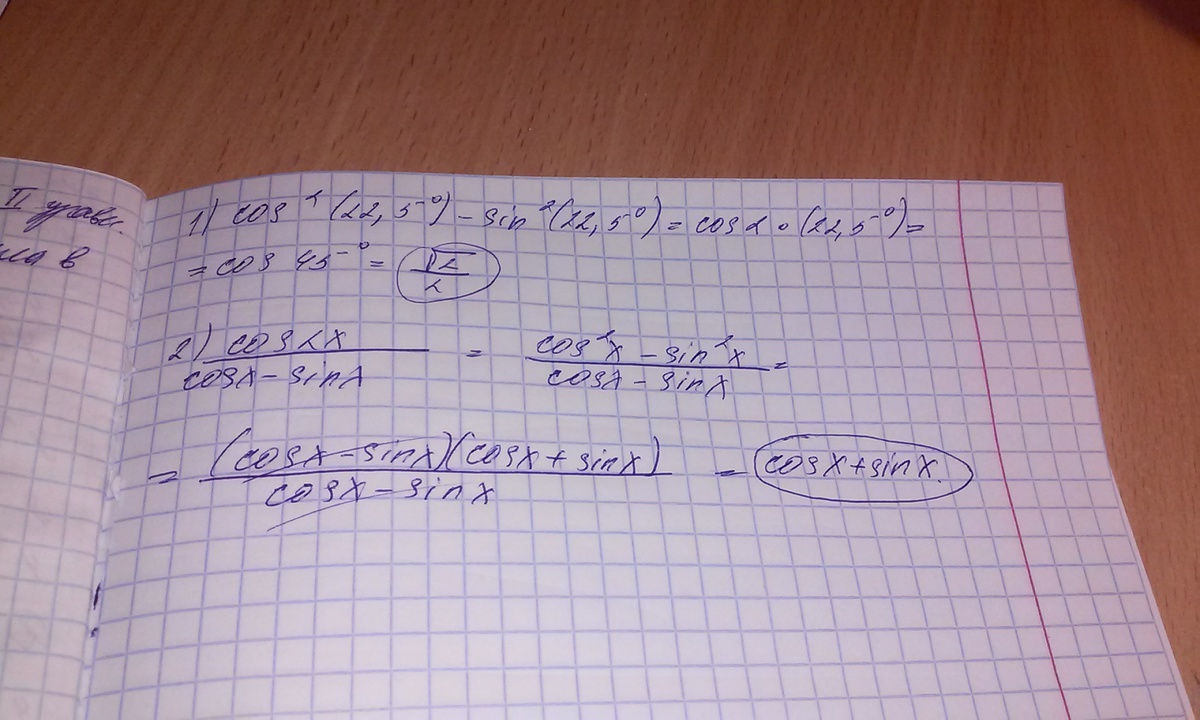 II уравн.
1) cos²(22,5°) - sin²(22,5°) = cos2·(22,5°) =
= cos 45° = √2/2
2) cos2x / (cosx - sinx) = (cos²x - sin²x) / (cosx - sinx) =
= (cosx - sinx)(cosx + sinx) / (cosx - sinx) = cosx + sinx.